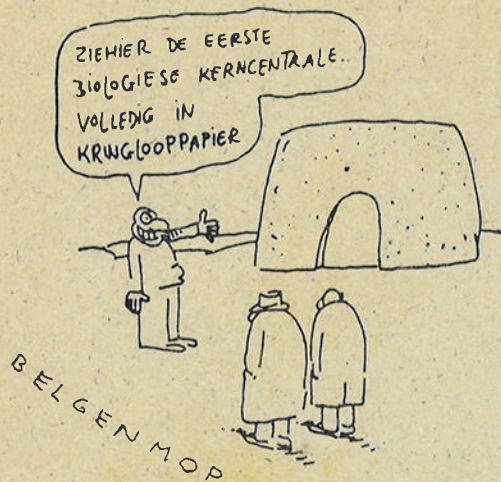 ZIEHIER DE EERSTE
BIOLOGIESE KERNCENTRALE..
VOLLEDIG IN
KRINGLOOPPAPIER
BELGENMOP